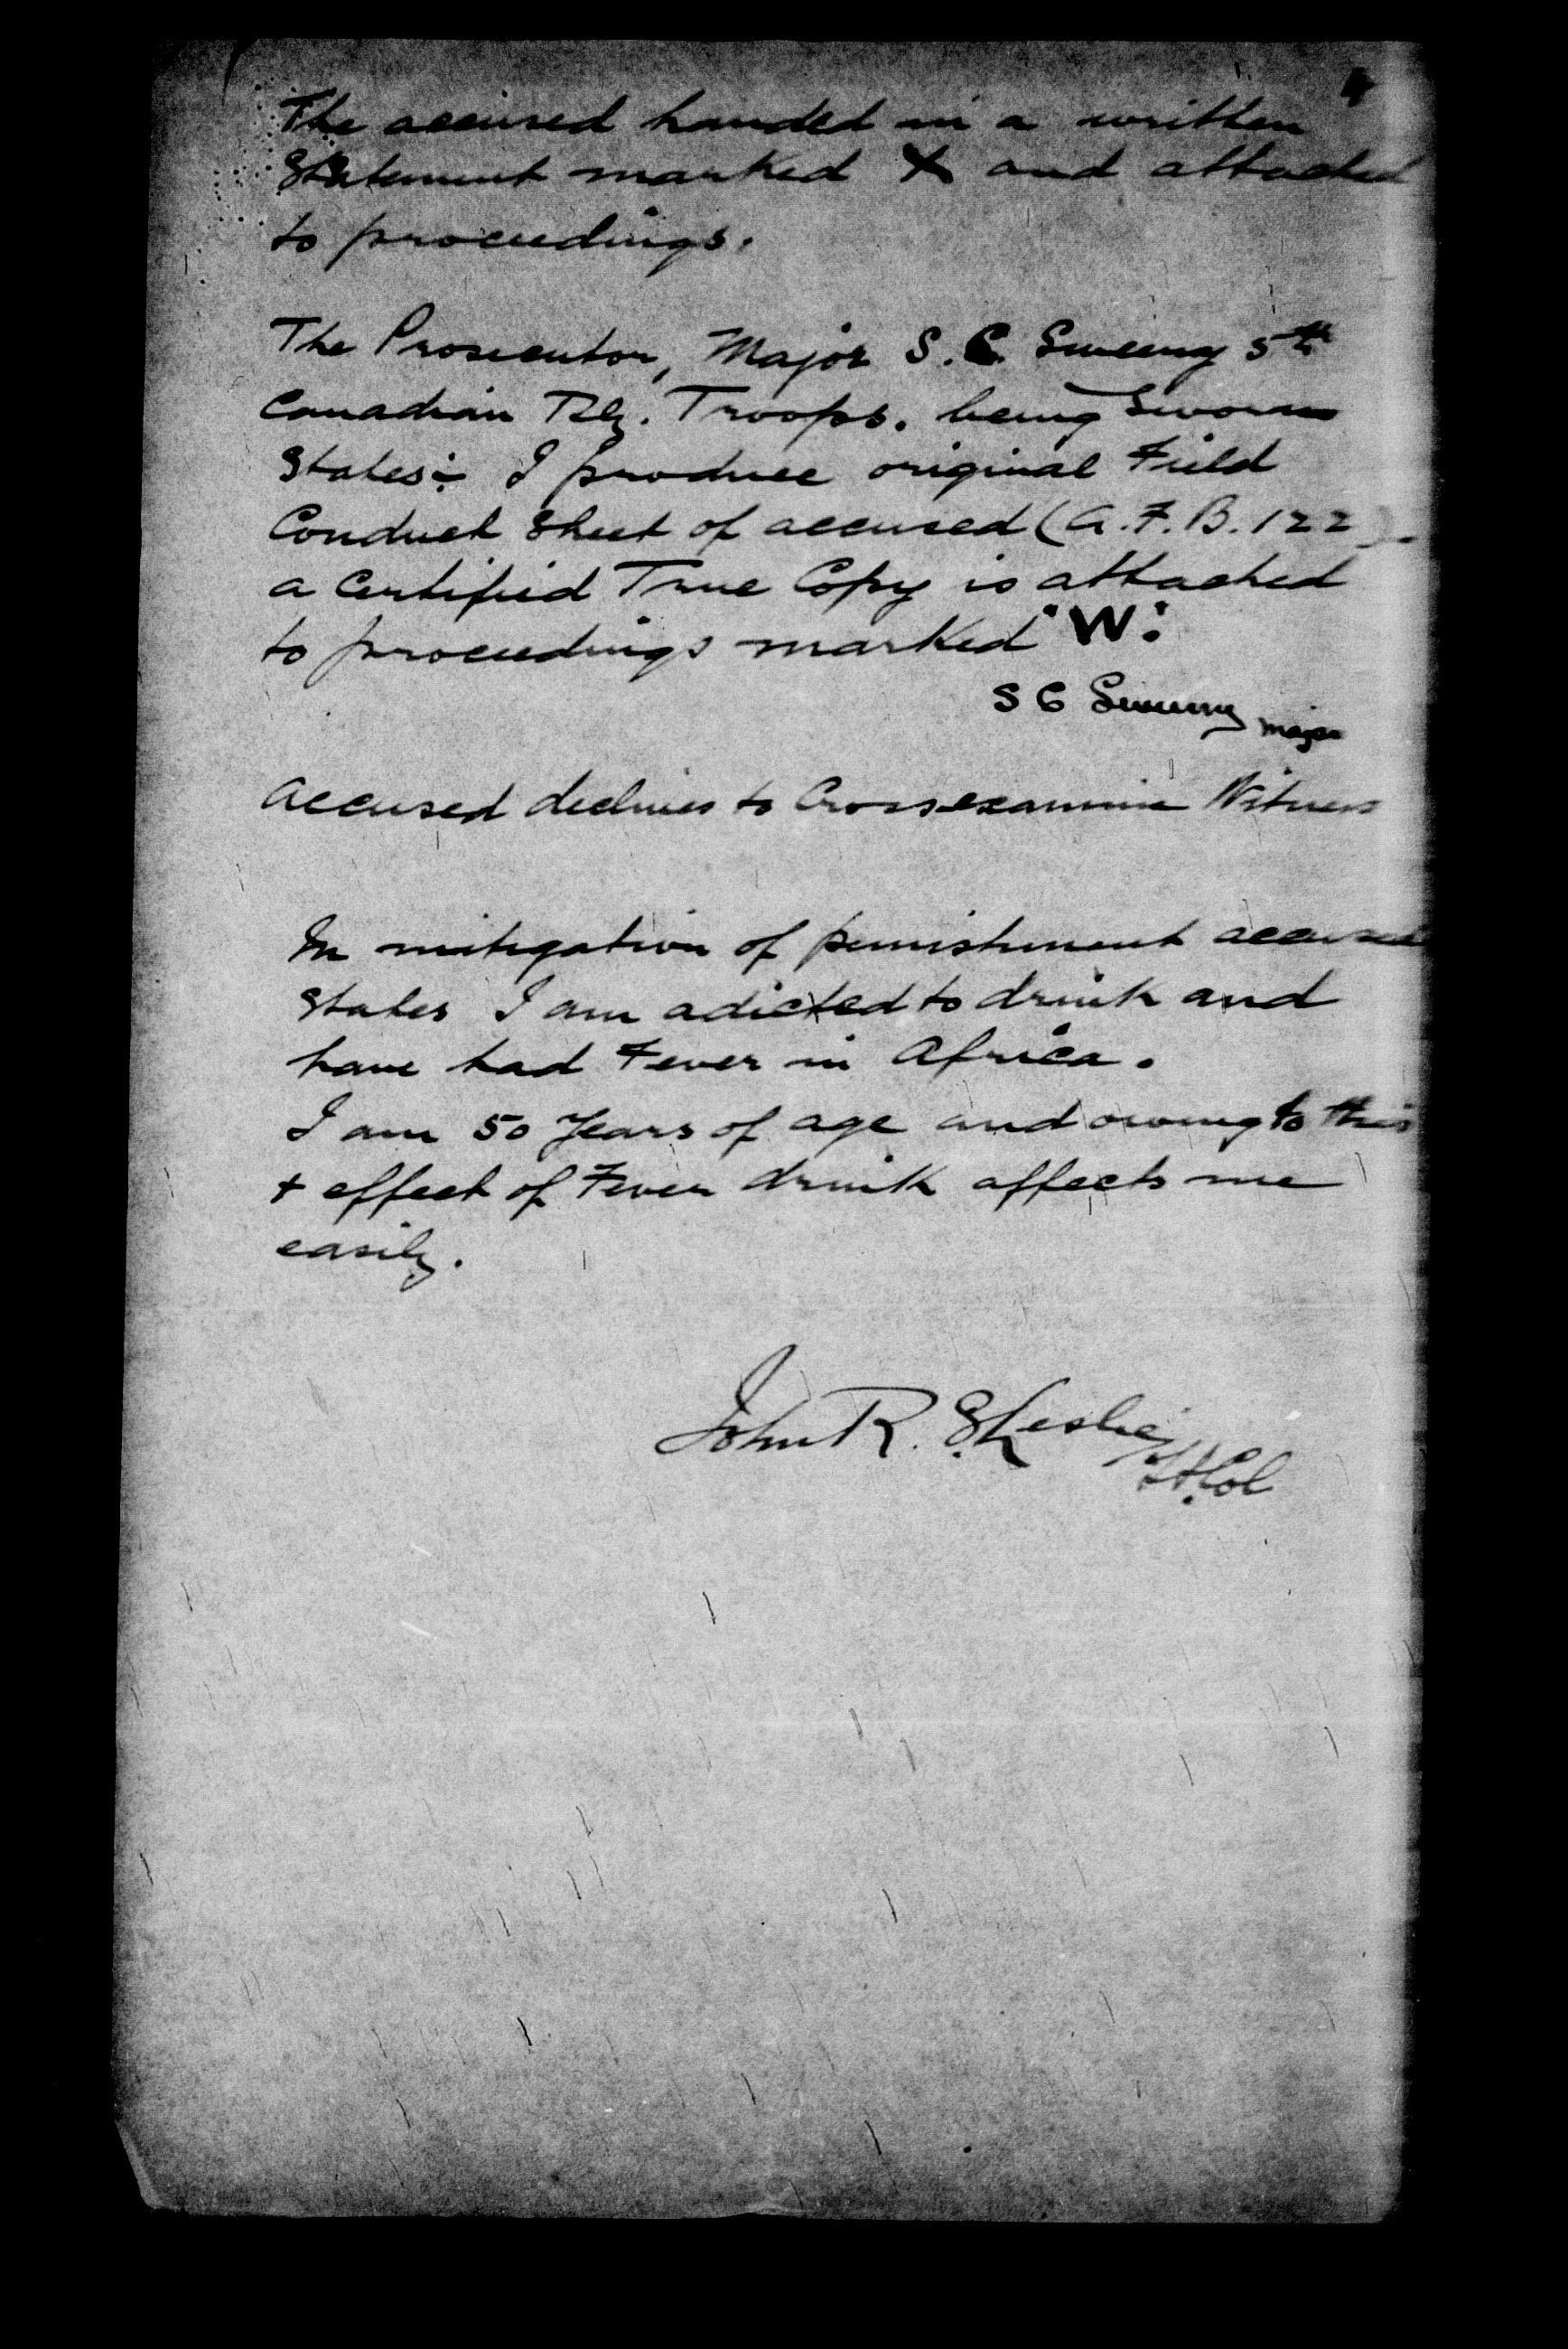 The accused handed in a written
Statement marked X and attached
to proceedings.
The Prosecutor, Major S. C. Sweeny 5th
Canadian Rly. Troops. being Sworn
States:- I produce original Field
Conduct Sheet of accused (A.F.B. 122)
a Certified True Copy is attached
to proceedings marked "W".
S C Sweeny Major
Accused declines to Cross examine Witness
In mitigation of punishment accused
States I am adicted to drink and
have had Fever in Africa.
I am 50 Years of age and owing to this
+ effect of Fever drink affects me
easily.
John R. S. Leslie
Lt. Col